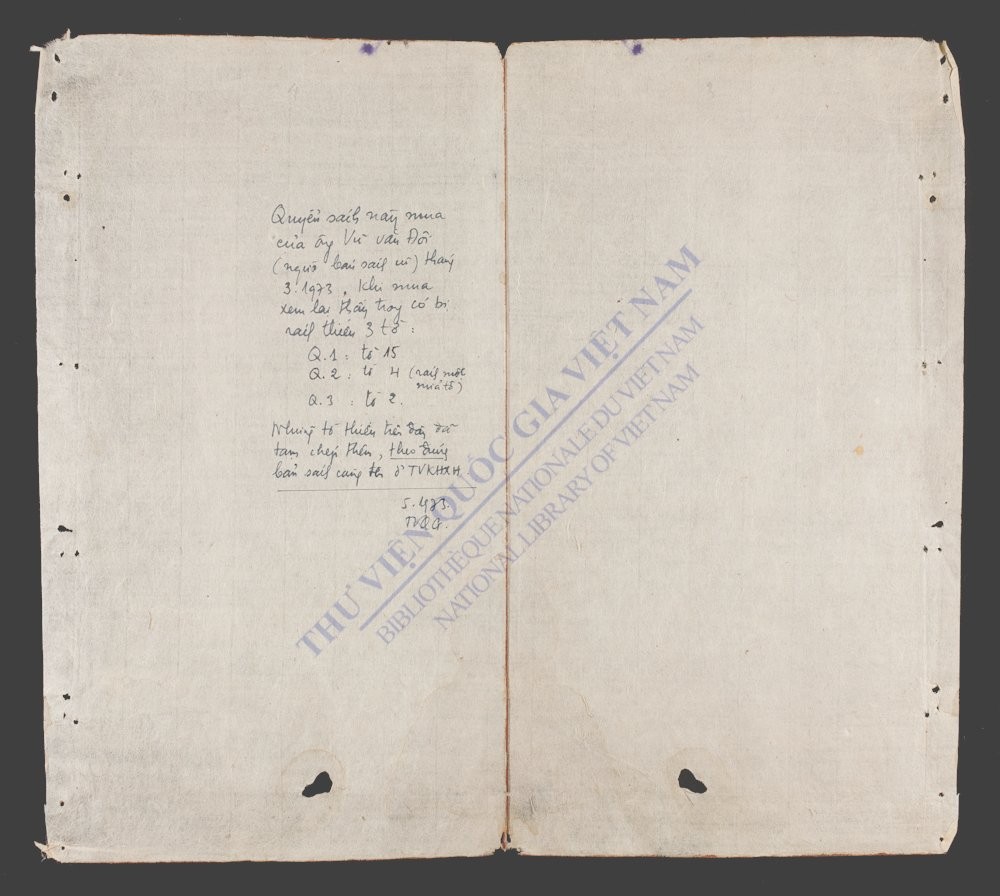 Quyển sách này mua
của ông Vũ văn Đôi
(người bán sách cũ) tháng
3.1973. Khi mua
xem lại thấy trong có bị
rách thiếu 3 tờ:
Q.1: tờ 15
Q.2: tờ 4 (rách một
nửa tờ)
Q.3: tờ 2.
Những tờ thiếu trên đây đã
tạm chép thêm, theo đúng
bản sách cùng tên ở TVKHXH
5.1973.
TVQG.
THƯ VIỆN QUỐC GIA VIỆT NAM
BIBLIOTHÈQUE NATIONALE DU VIETNAM
NATIONAL LIBRARY OF VIETNAM